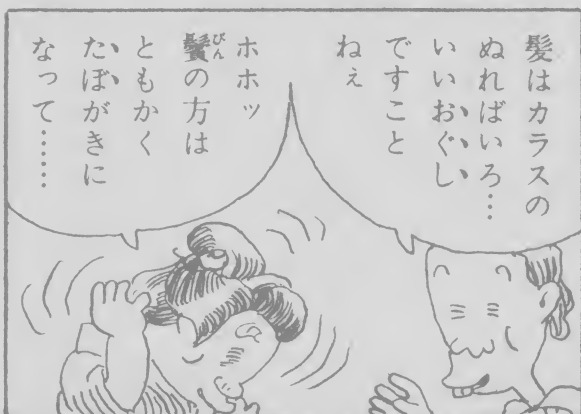 髪はカラスの
ぬればいろ…
いいおぐし
ですこと
ねぇ
ホホッ
鬢の方は
ともかく
たぼがきに
なって……
びん